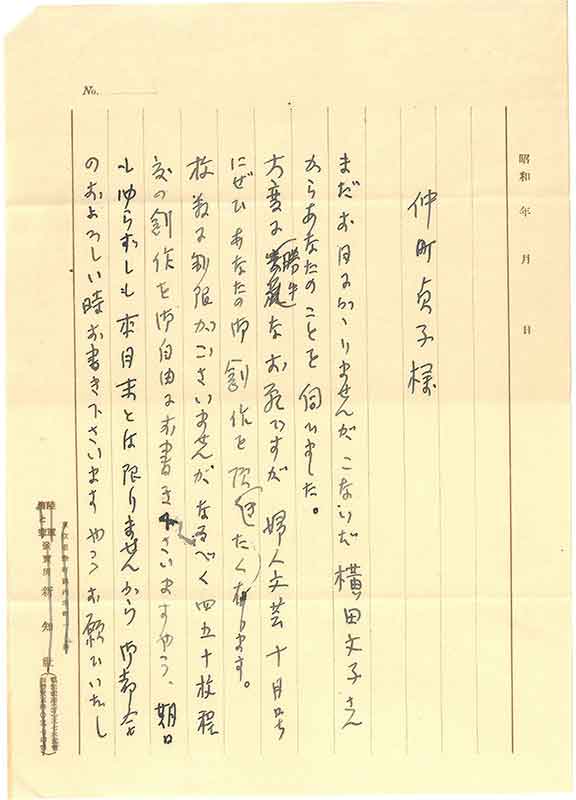 No.
昭和 年 月 日
仲町貞子様
まだお目にかゝりませんがこないだ横田文子さん
からあなたのことを伺ひました。
大変に勝手なお願ですが婦人文芸十月号
にぜひあなたの御創作を頂きたく存じます。
枚数に制限がございませんがなるべく四五十枚程
度の創作を御自由にお書き下さいますやう、期日
も必らずしも本月末とは限りませんから御都合
のおよろしい時お書き下さいますやうお願ひいたし
新知社